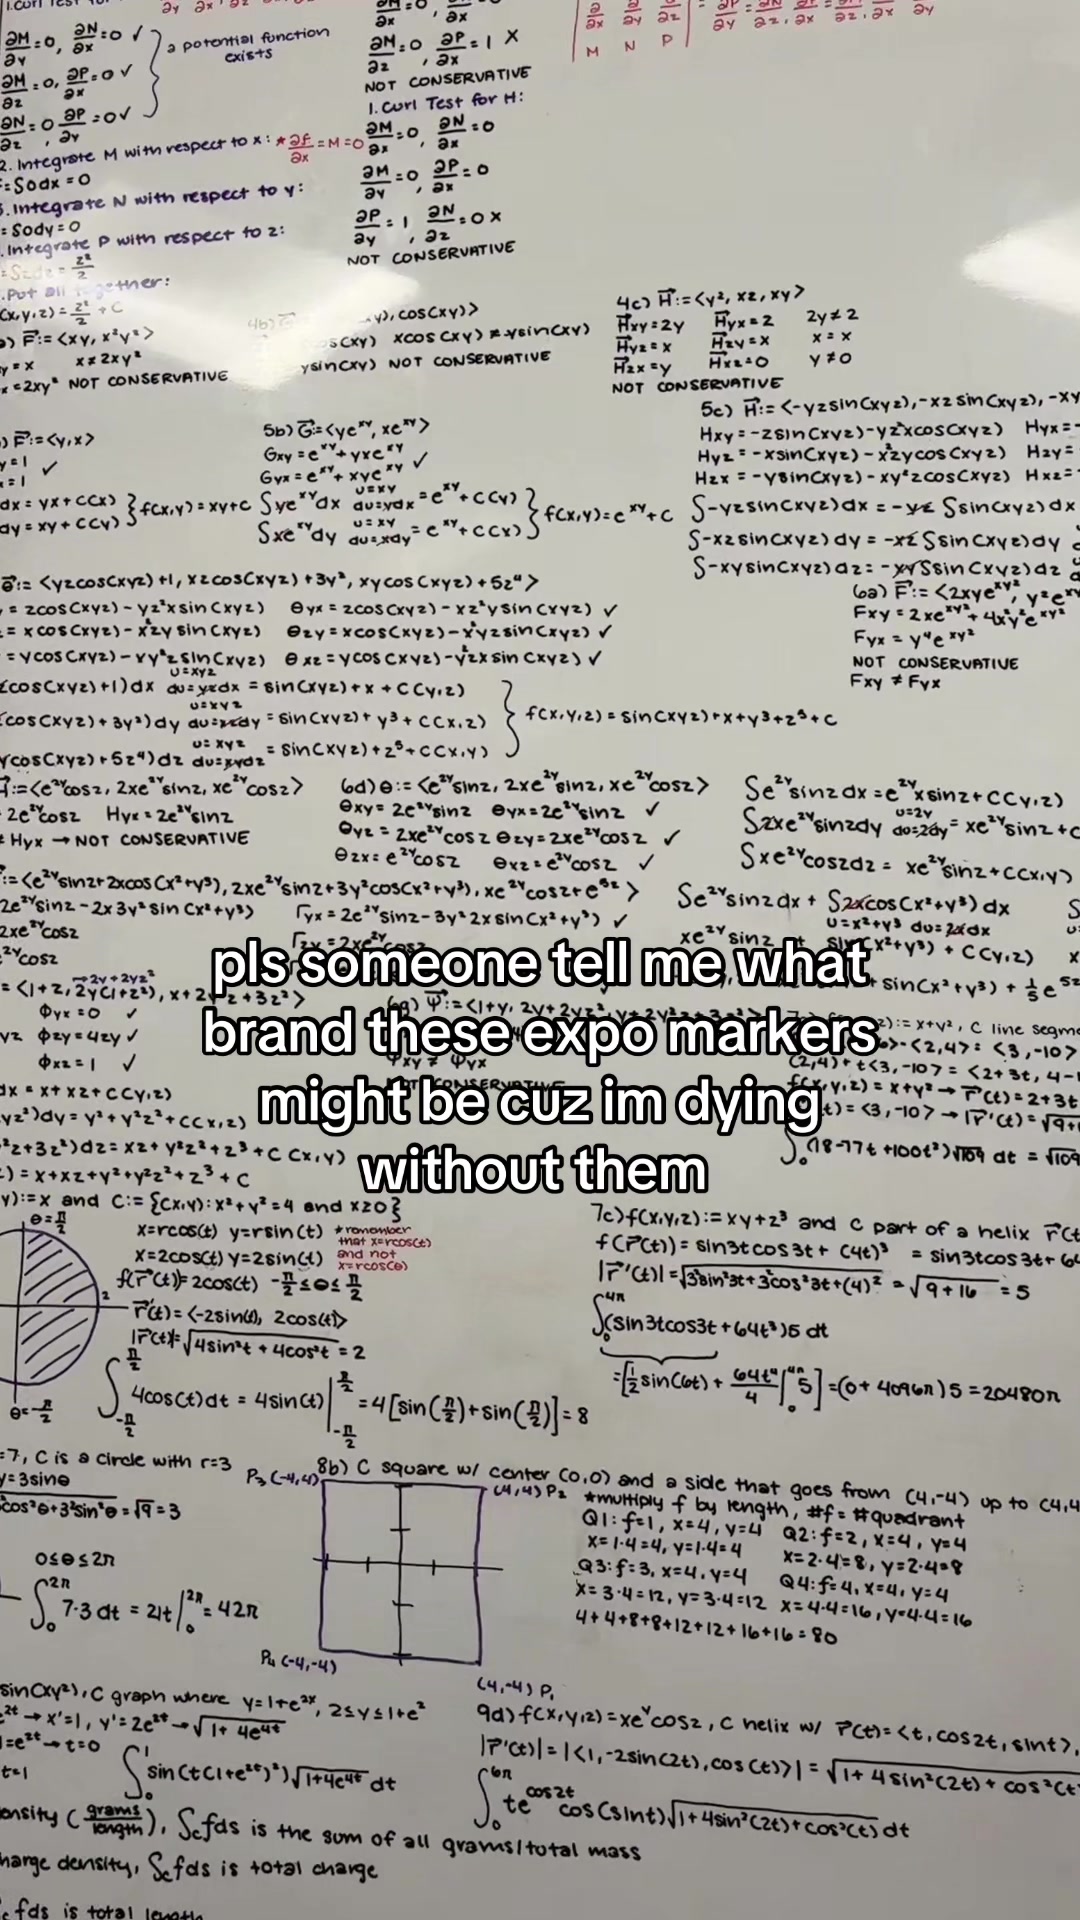 pls someone tell me what
brand these expo markers
might be cuz im dying
without them
∂M/∂y=0, ∂N/∂x=0 ✓
∂M/∂z=0, ∂P/∂x=0 ✓
∂N/∂z=0, ∂P/∂y=0 ✓
a potential function
exists
2. Integrate M with respect to x: *∂f/∂x=M=0
=S0dx=0
.Integrate N with respect to y:
=S0dy=0
.Integrate P with respect to z:
.Put all together:
∂M/∂z=0, ∂P/∂x=1 X
NOT CONSERVATIVE
1. Curl Test for H:
∂M/∂x=0, ∂N/∂x=0
∂M/∂y=0, ∂P/∂x=0
∂P/∂y=1, ∂N/∂z=0 X
NOT CONSERVATIVE
M N P
F:=<xy, x²y²>
x≠2xy²
NOT CONSERVATIVE
xcos(xy)≠-ysin(xy)
NOT CONSERVATIVE
4c) H:=<y², xz, xy>
Hxy=2y Hyx=z 2y≠z
Hyz=x Hzy=x x=x
Hzx=y Hxz=0 y≠0
NOT CONSERVATIVE
F:=<y,x>
f(x,y)=xy+C
5b) G:=<ye^xy, xe^xy>
Gxy=e^xy+yxe^xy
Gyx=e^xy+xye^xy ✓
Sye^xy dx u=xy du=ydx =e^xy+C(y)
Sxe^xy dy u=xy du=xdy =e^xy+C(x)
f(x,y)=e^xy+C
5c) H:=<-yzsin(xyz),-xzsin(xyz),-xy
Hxy=-zsin(xyz)-yz²xcos(xyz) Hyx=-
Hyz=-xsin(xyz)-x²zycos(xyz) Hzy=
Hzx=-ysin(xyz)-xy²zcos(xyz) Hxz=
S-yzsin(xyz)dx
S-xzsin(xyz)dy
S-xysin(xyz)dz
:=<yzcos(xyz)+1, xzcos(xyz)+3y², xycos(xyz)+5z⁴>
=zcos(xyz)-yz²xsin(xyz) Θyx=zcos(xyz)-xz²ysin(xyz) ✓
=xcos(xyz)-x²zysin(xyz) Θzy=xcos(xyz)-x²yzsin(xyz) ✓
=ycos(xyz)-xy²zsin(xyz) Θxz=ycos(xyz)-y²zxsin(xyz) ✓
=sin(xyz)+x+C(y,z)
=sin(xyz)+y³+C(x,z)
=sin(xyz)+z⁵+C(x,y)
f(x,y,z)=sin(xyz)+x+y³+z⁵+C
6a) F:=<2xye^xy², y²e^xy
Fxy=2xe^xy²+4x²y²e^xy²
Fyx=y⁴e^xy²
NOT CONSERVATIVE
Fxy≠Fyx
:=<e^2ycosz, 2xe^2ysinz, xe^2ycosz>
2e^2ycosz Hyx=2e^2ysinz
≠Hyx→NOT CONSERVATIVE
6d) Θ:=<e^2ysinz, 2xe^2ysinz, xe^2ycosz>
Θxy=2e^2ysinz Θyx=2e^2ysinz ✓
Θyz=2xe^2ycosz Θzy=2xe^2ycosz ✓
Θzx=e^2ycosz Θxz=e^2ycosz ✓
Se^2ysinzdx=e^2yxsinz+C(y,z)
S2xe^2ysinzdy u=2y du=2dy =xe^2ysinz+C
Sxe^2ycoszdz=xe^2ysinz+C(x,y)
:=<e^2ysinz+2xcos(x²+y³), 2xe^2ysinz+3y²cos(x²+y³), xe^2ycosz+e^5z>
2e^2ysinz-2x3y²sin(x²+y³) Γyx=2e^2ysinz-3y²2xsin(x²+y³) ✓
Se^2ysinzdx+S2xcos(x²+y³)dx
u=x²+y³ du=2xdx
Φyx=0 ✓
Φzy=4zy ✓
Φxz=1 ✓
dx=x+xz+C(y,z)
yz²)dy=y²+y²z²+C(x,z)
²z+3z²)dz=xz+y²z²+z³+C(x,y)
)=x+xz+y²+y²z²+z³+C
<2,4>=<3,-10>
(2,4)+t<3,-10>=<2+3t, 4-1
∫₀(18-77t+100t²)√109 dt=√109
y):=x and C:={(x,y):x²+y²=4 and x≥0}
θ=π/2
θ=-π/2
2
x=rcos(t) y=rsin(t)
x=2cos(t) y=2sin(t)
*remember
that x=rcos(t)
and not
x=rcos(θ)
f(r(t))=2cos(t) -π/2≤θ≤π/2
r'(t)=<-2sin(t), 2cos(t)>
|r'(t)|=√4sin²t+4cos²t=2
∫_-π/2^π/2 4cos(t)dt=4sin(t)|_-π/2^π/2=4[sin(π/2)+sin(π/2)]=8
7c) f(x,y,z):=xy+z³ and C part of a helix r(t
f(r(t))=sin3tcos3t+(4t)³ =sin3tcos3t+64
|r'(t)|=√3²sin²3t+3²cos²3t+(4)²=√9+16=5
∫₀^4π(sin3tcos3t+64t³)5 dt
=[½sin(6t)+64t⁴/4|₀^4π 5]=(0+4096π)5=20480π
=7, C is a circle with r=3
y=3sinθ
cos²θ+3²sin²θ=√9=3
0≤θ≤2π
∫₀^2π 7·3 dt=21t|₀^2π=42π
8b) C square w/ center (0,0) and a side that goes from (4,-4) up to (4,4
P₃(-4,4)
(4,4)P₂
P₄(-4,-4)
(4,-4)P₁
*multiply f by length, #f=#quadrant
Q1:f=1, x=4, y=4 Q2:f=2, x=4, y=4
x=1·4=4, y=1·4=4 x=2·4=8, y=2·4=8
Q3:f=3, x=4, y=4 Q4:f=4, x=4, y=4
x=3·4=12, y=3·4=12 x=4·4=16, y=4·4=16
4+4+8+8+12+12+16+16=80
sin(xy²), C graph where y=1+e^2x, 2≤y≤1+e²
e^2t→x'=1, y'=2e^2t→√1+4e^4t
=e^2t→t=0
t=1
∫₀¹sin(t(1+e^2t)²)√1+4e^4t dt
9d) f(x,y,z)=xe^ycosz, C helix w/ r(t)=<t, cos2t, sint>,
|r'(t)|=|<1,-2sin(2t),cos(t)>|=√1+4sin²(2t)+cos²(t
∫₀^6π te^cos2t cos(sint)√1+4sin²(2t)+cos²(t)dt
ensity (grams/length), S_cfds is the sum of all grams/total mass
harge density, S_cfds is total charge
fds is total length